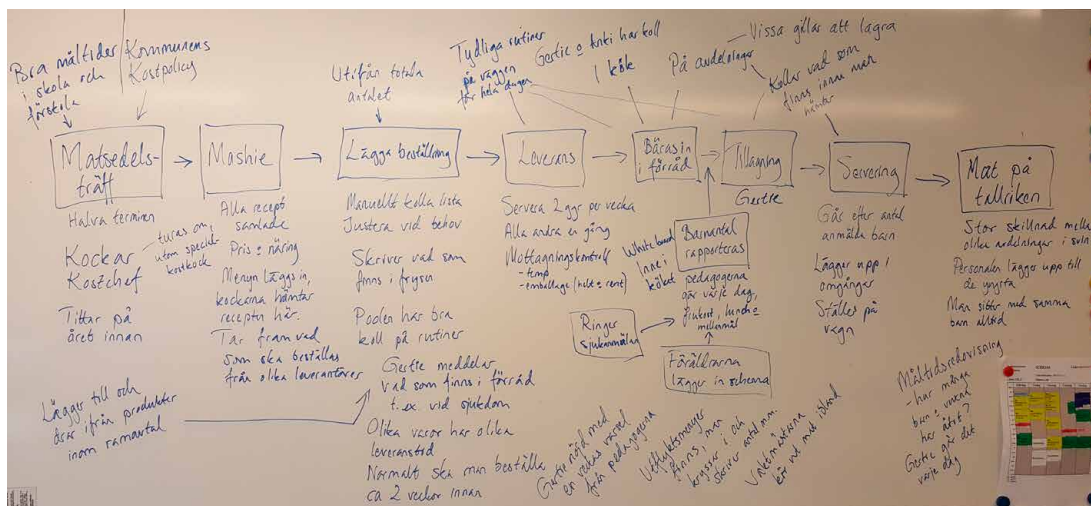 Bra måltider
i skola och
förskola
Kommunens
Kostpolicy
Matsedels-
träff
Halva terminen
Kockar
Kostchef
turas om,
utom special-
kostkock
Tittar på
året innan
Lägger till och
drar ifrån produkter
inom ramavtal
Mashie
Alla recept
samlade
Pris & näring
Menyn läggs in,
kockarna hämtar
recepten här.
Tar fram vad
som ska beställas
från olika leverantörer
Utifrån totala
antalet
Lägga beställning
Manuellt kolla lista
Justera vid behov
Skriver vad som
finns i frysen
Poolen har bra
koll på rutiner
Gertie meddelar
vad som finns i förråd
t.ex. vid sjukdom
Olika varor har olika
leveranstid
Normalt ska man beställa
ca 2 veckor innan
Tydliga rutiner
på väggen
för hela dagen
Gertie & Anki har koll
Leverans
Servera 2 ggr per vecka
Alla andra en gång
Mottagningskontroll
- temp
- emballage (helt & rent)
I kök
På avdelningar
Vissa gillar att lagra
Kollar vad som
finns innan man
hämtar
Bäras in
i förråd
Tillagning
Gertie
Barnantal
rapporteras
Whiteboard
inne i
köket
pedagogerna
går varje dag,
frukost, lunch &
mellanmål
Ringer
sjukanmälan
Föräldrarna
lägger in schema
Gertie nöjd med
en veckas varsel
från pedagogerna
Utflyktsmenyer
finns, man
kryssar i och
skriver antal mm.
kör ut mat ibland
Servering
Går efter antal
anmälda barn
Lägger upp i
omgångar
Ställer på
vagn
Mat på
tallriken
Stor skillnad mellan
olika avdelningar i
Personalen lägger upp till
de yngsta
Man sitter med samma
barn alltid
Måltidsredovisning
- har många
barn & vuxna
har ätit?
Gertie gör det
varje dag